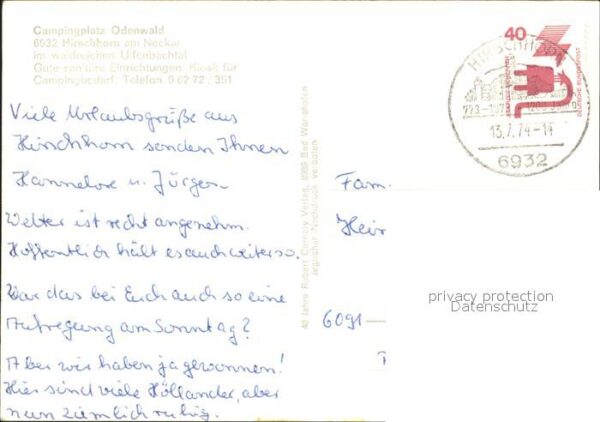 Campingplatz Odenwald
6932 Hirschhorn am Neckar
im waldreichen Ulfenbachtal
Gute sanitäre Einrichtungen. Kiosk für
Campingbedarf. Telefon 0 62 72 / 351
Viele Urlaubsgrüße aus
Hirschhorn senden Ihnen
Hannelore u. Jürgen.
Wetter ist recht angenehm.
Hoffentlich hält es auch weiter so.
War das bei Euch auch so eine
Aufregung am Sonntag?
Aber wir haben ja gewonnen!
Hier sind viele Holländer, aber
nun ziemlich ruhig.
40 Jahre Robert Cerrety Verlag, 8939 Bad Wörishofen
Jeglicher Nachdruck verboten
40
DEUTSCHE BUNDESPOST
HIRSCHHORN
773-1973
1200
13.7.74-14
6932
Fam.
Heir
6091
privacy protection
Datenschutz